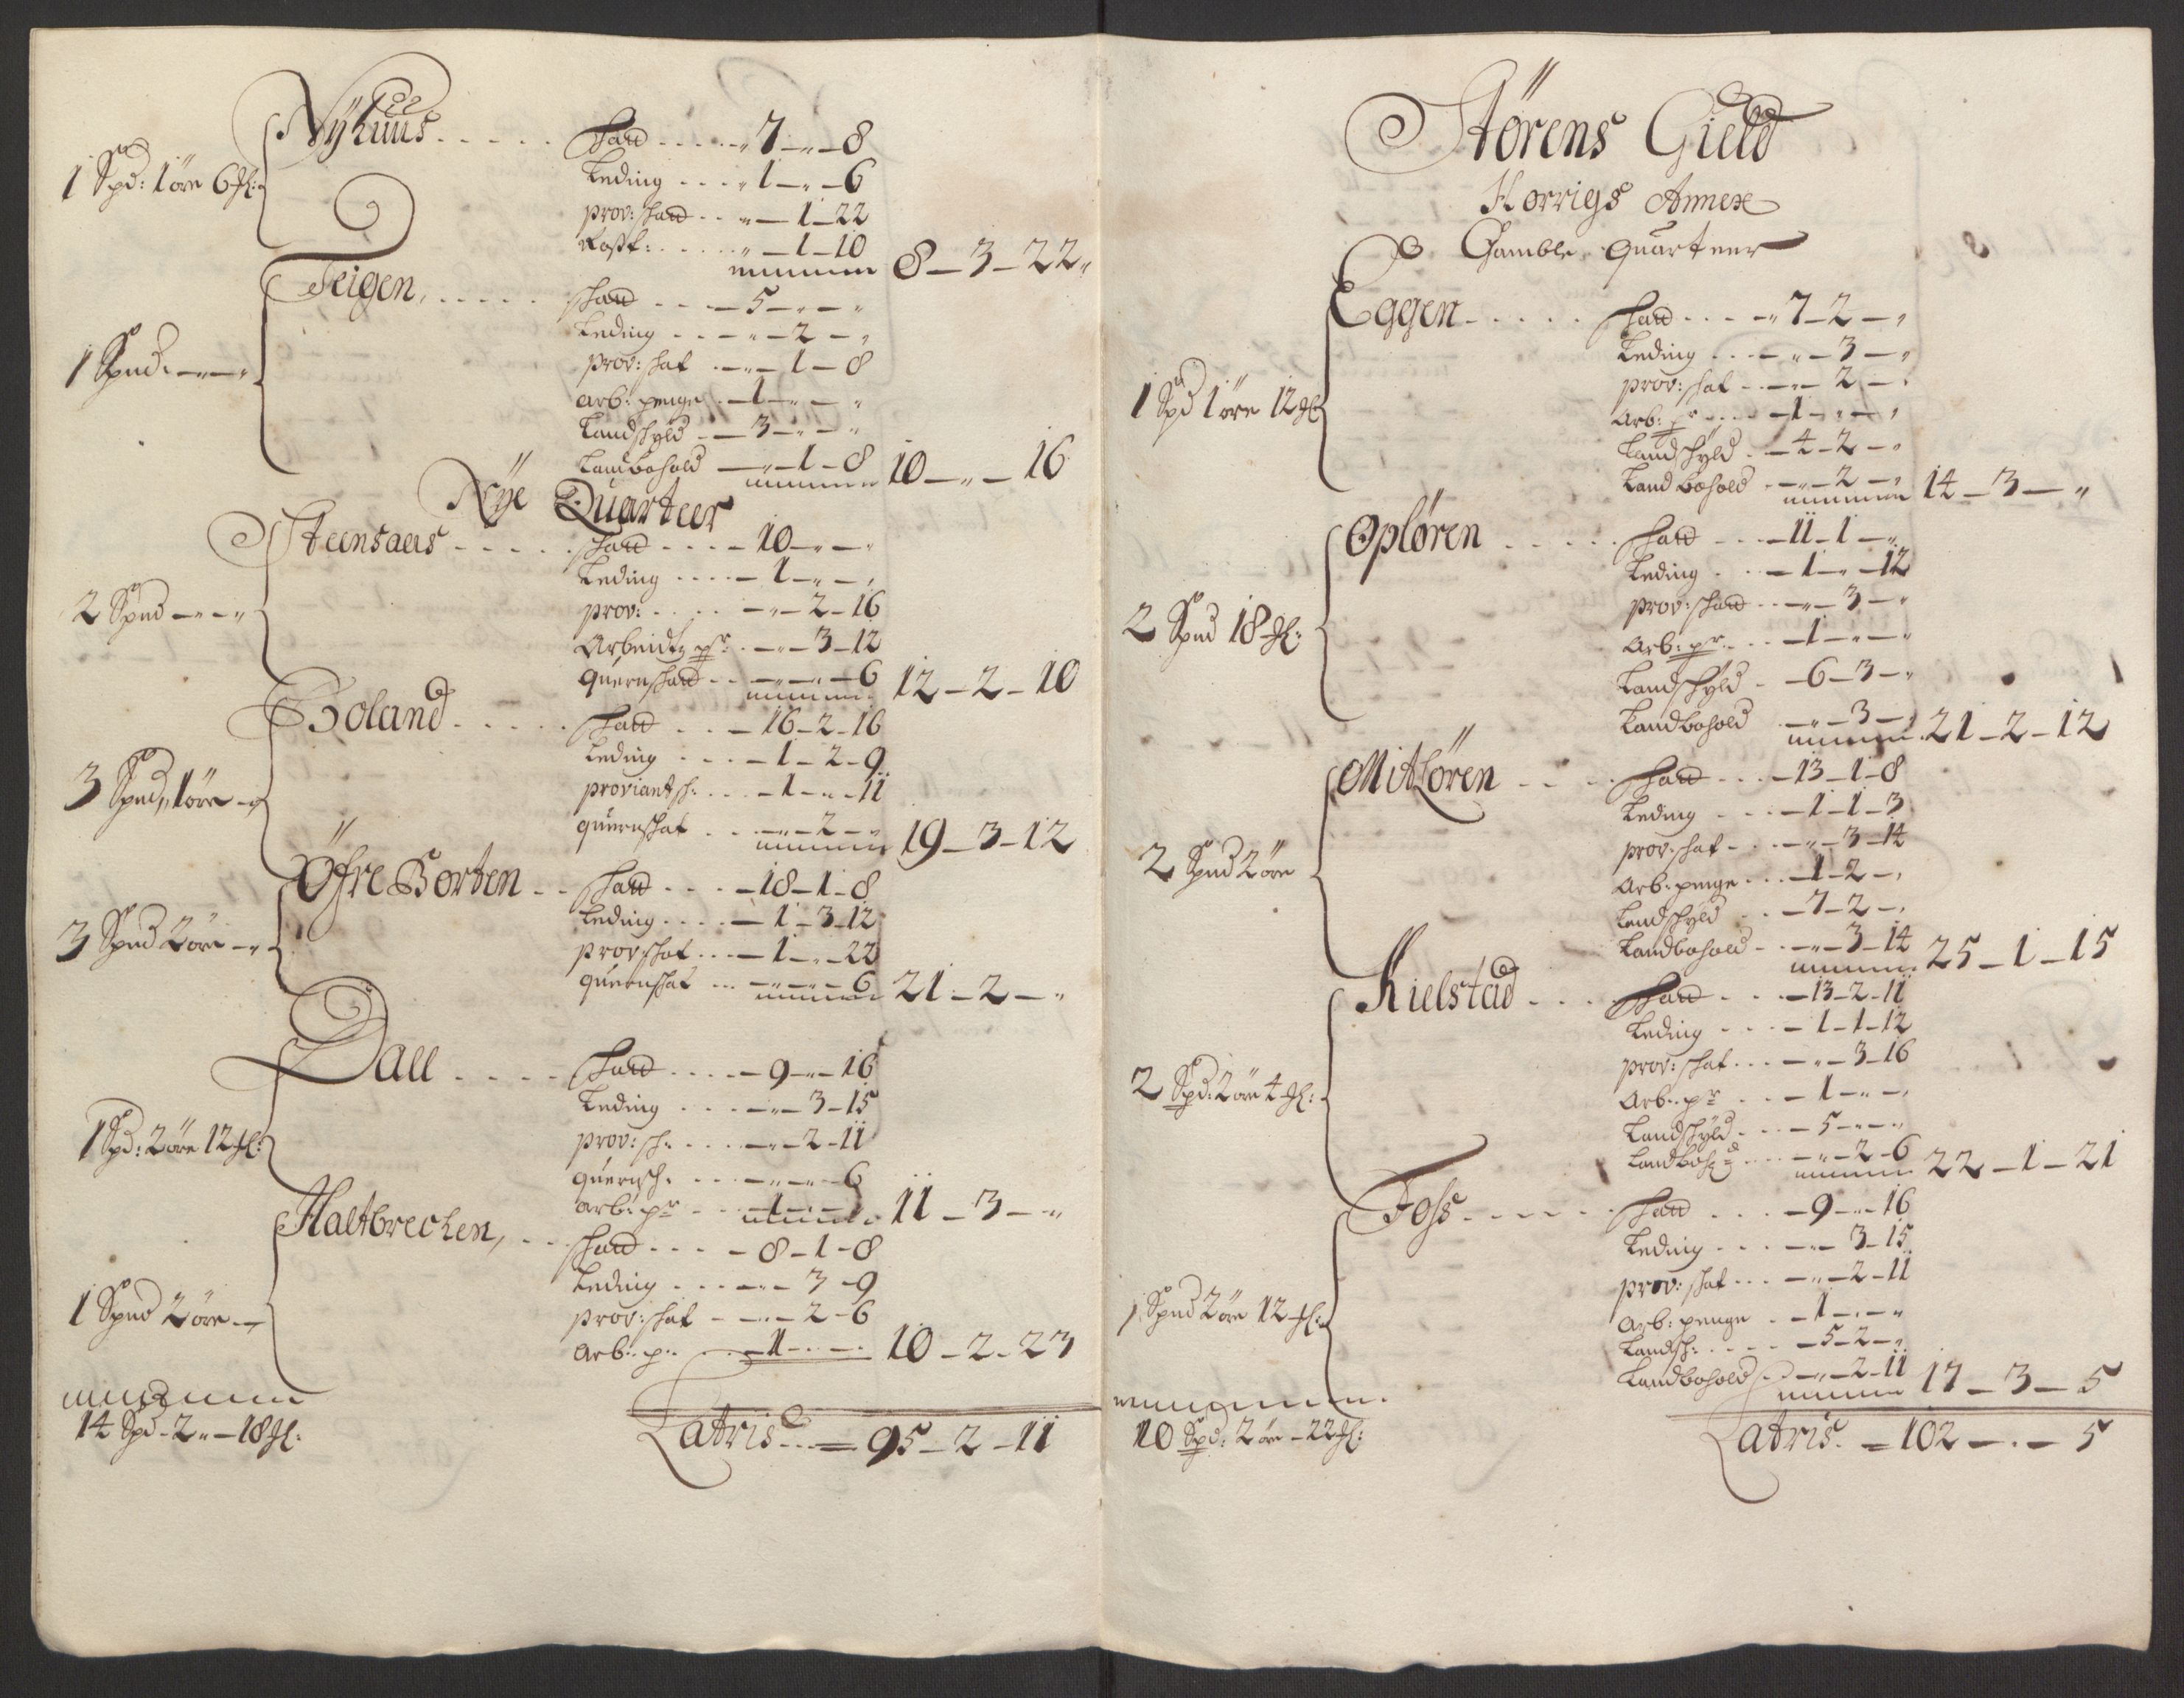 Nyhuus ..... Skatt .... „ 7 — „ — 8
1 Spd: 1 öre 6 Ml: Leding .... „ 1 — „ — 6
prov: skatt .. „ — 1 — 22
Rostt: ..... „ — 1 — 10 8 — 3 — 22 „
Teigen, ..... skatt ... — 5 — „ — „
1 Spnd. — „ — „ Leding ... — „ — 2 — „
Prov: skat . — „ — 1 — 8
arb: penge . — 1 — „ — „
Landskyld . — 3 — „ — „
Landbohold — „ — 1 — 8 10 — „ — 16
Nÿe Quarteer
Steensaas ..... skatt .... — 10 — „ — „
2 Spnd — „ — „ Leding .... — 1 — „ — „
prov: .... — „ — 2 — 16
Arbeidtz pr: . — „ — 3 — 12
quernskatt .. — „ — „ — 6 12 — 2 — 10
Boland ..... skatt ... — 16 — 2 — 16
3 Spnd, 1 öre — „ Leding ... — 1 — 2 — 9
proviantsk: ... — 1 — „ — 11
quernskat .. — „ — 2 — „ 19 — 3 — 12
Öfre Borten .. skatt .... — 18 — 1 — 8
3 Spnd 2 öre — „ Leding .... — 1 — 3 — 12
prov: skat ... — 1 — „ — 22
quernskat ... — „ — „ — 6 21 — 2 — „
Dall ..... skatt .... — 9 — „ — 16
1 Spd: 2 öre 12 Ml: Leding ... — „ — 3 — 15
prov: sk: .... — „ — 2 — 11
quernsk: ... — „ — „ — 6
arb: pr .. — 1 — „ — „ 11 — 3 — „
Haltbrechen, .. skatt .... — 8 — 1 — 8
1 Spnd 2 öre — „ Leding ... — „ — 3 — 9
prov: skat — „ — 2 — 6
Arb: p: ... — 1 — „ — „ 10 — 2 — 23
14 Spd — 2 „ — 18 Ml: Latris ... = 95 — 2 — 11
Störens Gield
Horrigs Annex
Gamble Quarteer
Eggen ..... skatt ... — „ 7 — 2 — „
1 Spd 1 öre 12 Ml Leding ... — „ — 3 — „
prov: skat — „ — 2 — „
Arb: pr .... — 1 — „ — „
Landskÿld . — 4 — 2 — „
Land bohold . — „ — 2 — „ 14 — 3 — „
Oplören ..... skatt ... — 11 — 1 — „
2 Spnd 18 Ml: Leding ... — 1 — „ — 12
prov: skatt .. — „ — 3 — „
Arb: pr ... — 1 — „ — „
Landskÿld . — 6 — 3 — „
Landbohold . — „ — 3 — „ 21 — 2 — 12
Mitlören ... skatt ... — 13 — 1 — 8
2 Spnd 2 öre Leding ... — 1 — 1 — 3
prov: skat ... — „ — 3 — 14
Arb: penge ... — 1 — 2 — „
Landskyld .. — 7 — 2 — „
Landbohold .. — „ — 3 — 14 25 — 1 — 15
Kielstad ... skatt ... — 13 — 2 — 11
2 Spd: 2 öre 4 Ml: Leding ... — 1 — 1 — 12
prov: skat ... — „ — 3 — 16
Arb: pr .. — 1 — „ — „
Landskÿld ... — 5 — „ — „
Landboh: ... — „ — 2 — 6 22 — 1 — 21
Foss ..... skatt ... — 9 — „ — 16
1 Spnd 2 öre 12 Ml: Leding ... — „ — 3 — 15
prov: skat ... — „ — 2 — 11
Arb: penge . — 1 — „ — „
Landsk: .... — 5 — 2 — „
Landbohold . — „ — 2 — 11 17 — 3 — 5
10 Spd: 2 öre — 22 Ml: Latris. = 102 — „ — 5